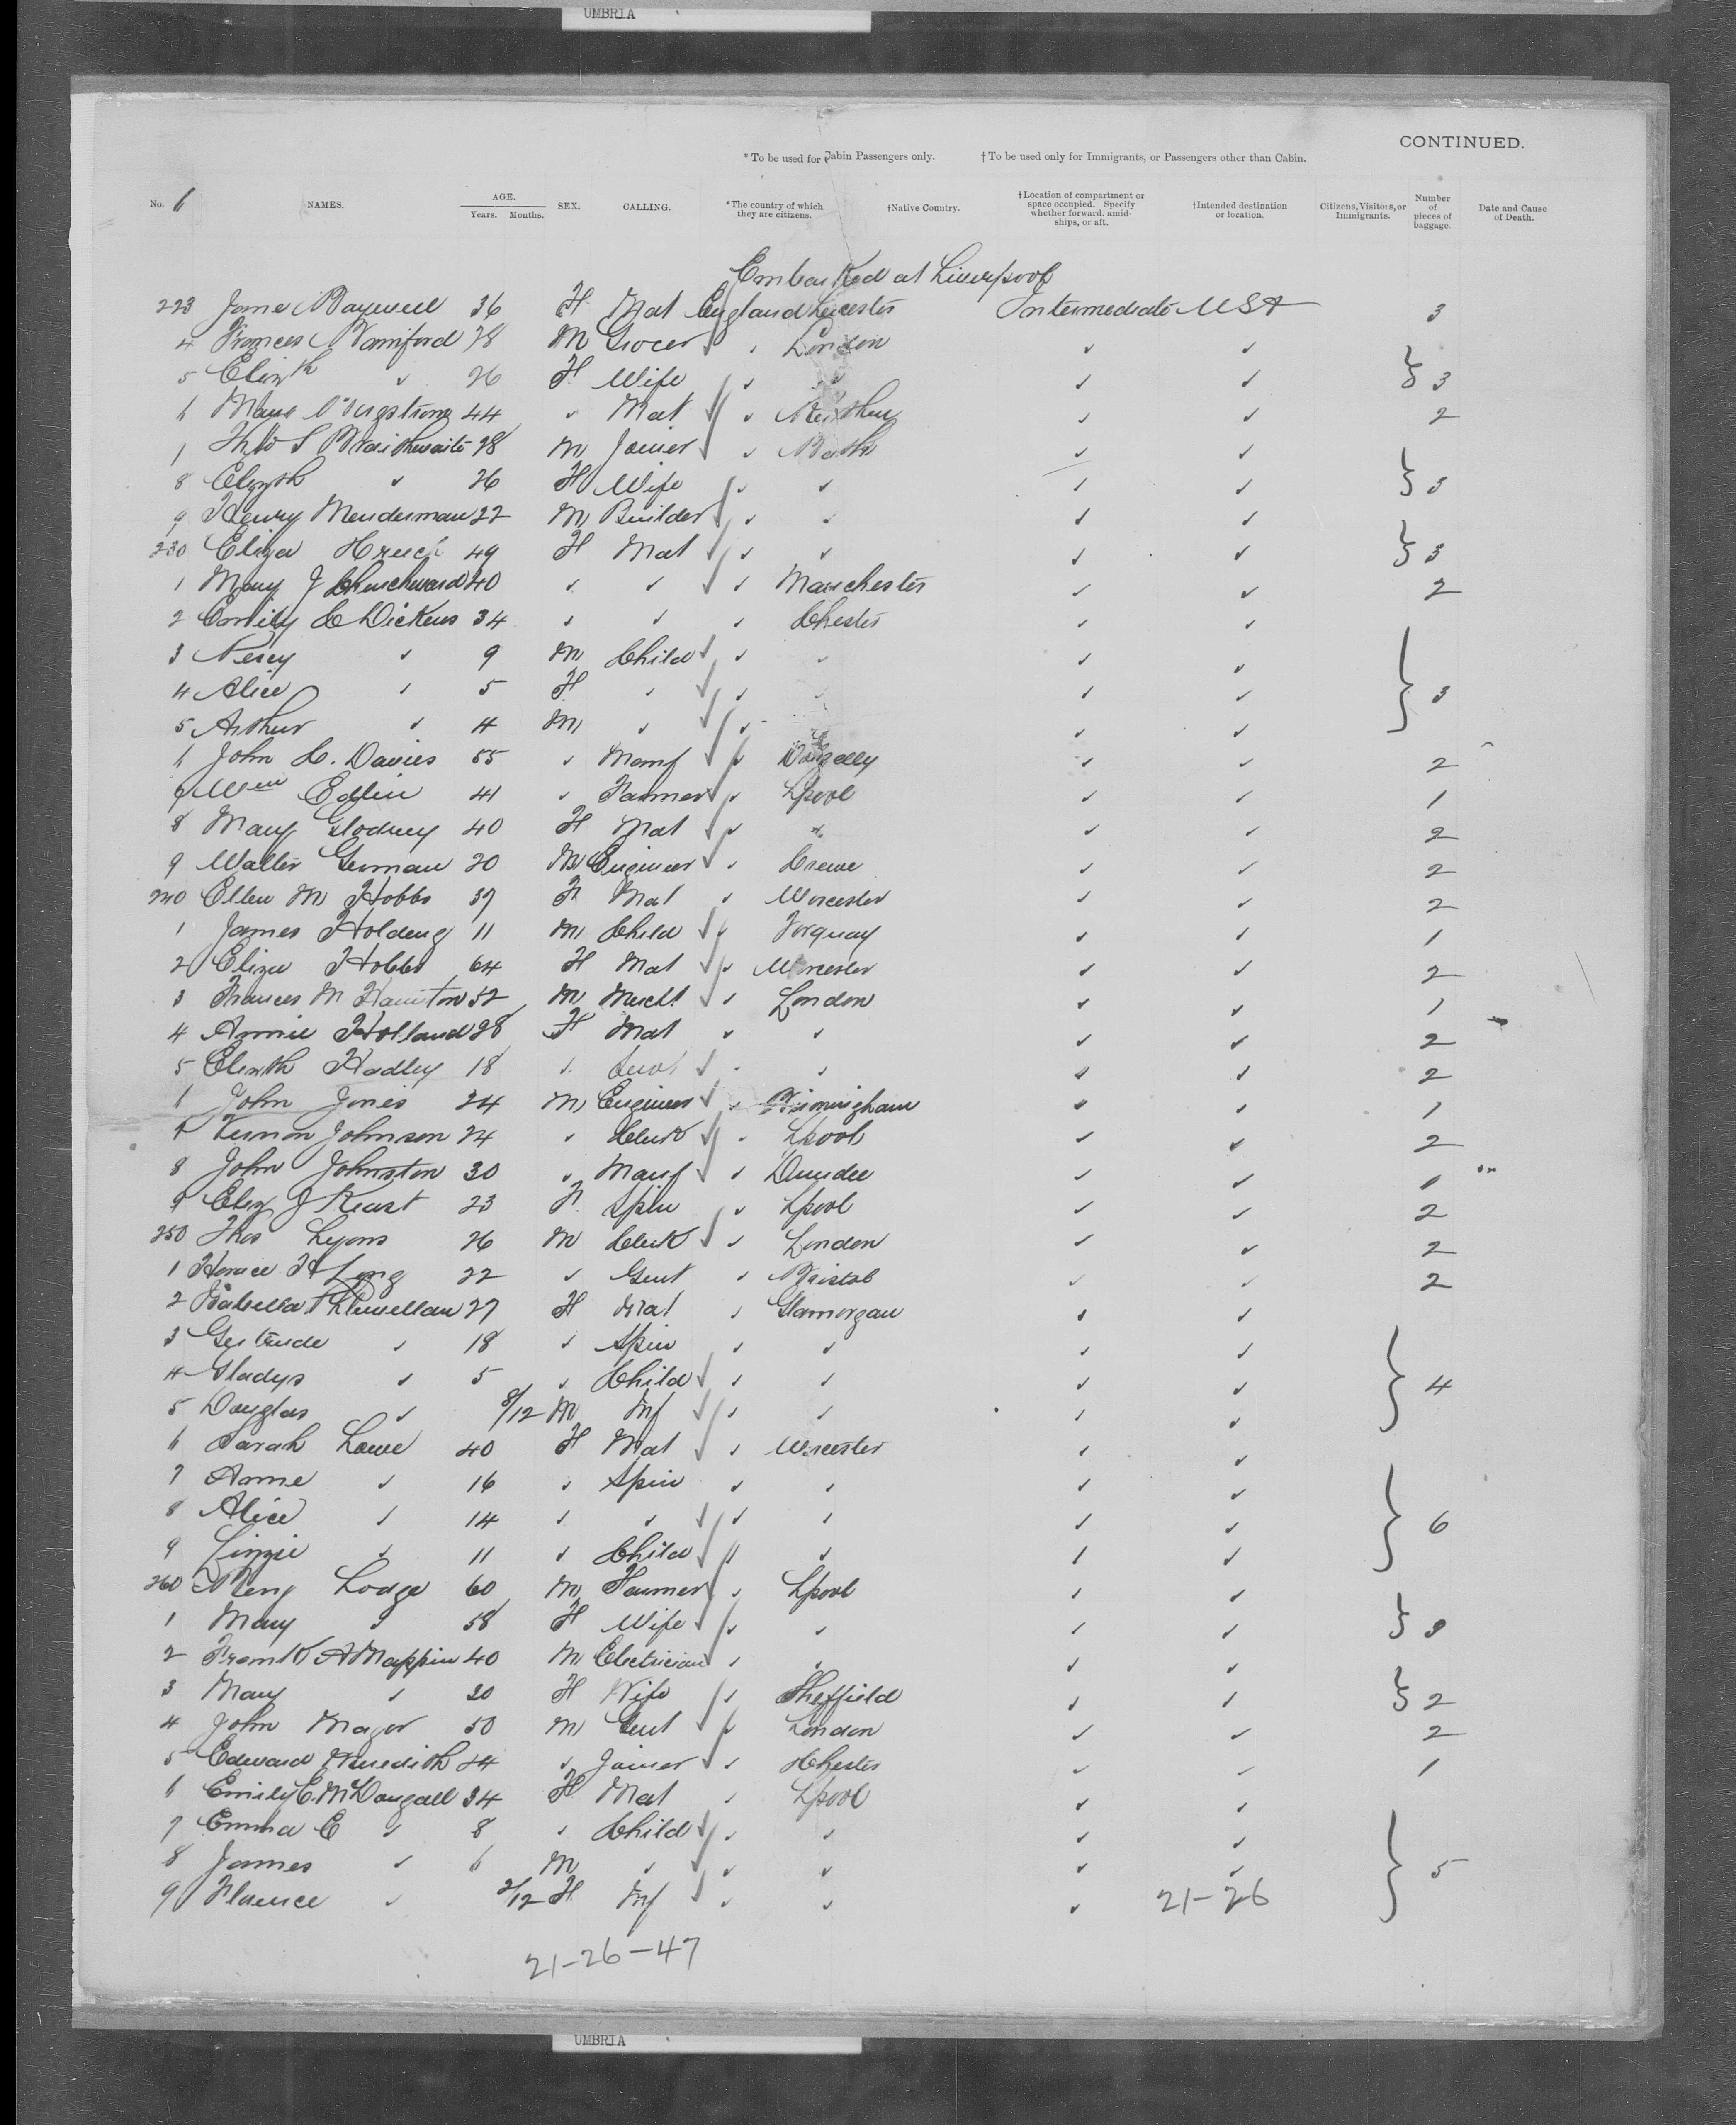 UMBRIA
CONTINUED.
* To be used for Cabin Passengers only. † To be used only for Immigrants, or Passengers other than Cabin.
No. 6 NAMES. AGE. Years. Months. SEX. CALLING. *The country of which they are citizens. †Native Country. †Location of compartment or space occupied. Specify whether forward, amidships, or aft. †Intended destination or location. Citizens, Visitors, or Immigrants. Number of pieces of baggage. Date and Cause of Death.
Embarked at Liverpool
223 Jane 36 F Mat England Leicester Intermediate USA 3
4 Frances Bamford 28 M Grocer " London " "
5 Elizth " 26 F Wife " " " " } 3
6 44 " Mat " " " 2
7 S Braithwaite 28 M Joiner " Bath " "
8 Elizth " 26 F Wife " " " " } 3
9 Henry Menderman 22 M Builder " " " "
230 Eliza 49 F Mat " " " " } 3
1 Mary J Churchward 40 " " " Manchester " " 2
2 Emily C Dickens 34 " " " Chester " "
3 Percy " 9 M Child " " " "
4 Alice " 5 F " " " " " } 3
5 Arthur " 4 M " " " " "
6 John C. Davies 55 " Manf " Dolgelly " " 2
7 Wm Edlin 41 " Farmer " Lpool " " 1
8 Mary 40 F Mat " " " " 2
9 Walter German 20 M Engineer " Crewe " " 2
240 Ellen M Hobbs 37 F Mat " Worcester " " 2
1 James Holding 11 M Child " Torquay " " 1
2 Eliza Hobbs 64 F Mat " Worcester " " 2
3 Frances M 52 M Mercht " London " " 1
4 Annie Holland 28 F Mat " " " " 2
5 Elizth Hadley 18 " " " " " 2
6 John Jones 24 M Engineer " Birmingham " " 1
7 Vernon Johnson 24 " Clerk " Lpool " " 2
8 John Johnston 30 " Manf " Dundee " " 1
9 Eliz J Keast 23 F Spin " Lpool " " 2
250 Thos Lyons 26 M Clerk " London " " 2
1 Horace H Long 22 " Gent " Bristol " " 2
2 Isabella Llewellan 27 F Mat " Glamorgan " "
3 Gertrude " 18 " Spin " " " "
4 Gladys " 5 " Child " " " " } 4
5 Douglas " 8/12 M Inf " " " "
6 Sarah Lowe 40 F Mat " Worcester " "
7 Annie " 16 " Spin " " " "
8 Alice " 14 " " " " " " } 6
9 Lizzie " 11 " Child " " " "
260 Benj Lodge 60 M Farmer " Lpool " "
1 Mary " 58 F Wife " " " " } 3
2 Frank A Mappin 40 M Electrician " " " "
3 Mary " 30 F Wife " Sheffield " " } 2
4 John Major 50 M Gent " London " " 2
5 Edward Meredith 24 " Joiner " Chester " " 1
6 Emily C. McDougall 34 F Mat " Lpool " "
7 Emma E " 8 " Child " " " "
8 James " 6 M " " " " " } 5
9 Florence " 2/12 F Inf " " " 21-26
21-26-47
UMBRIA